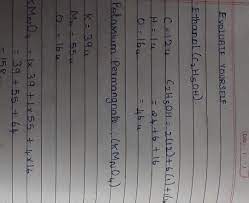 EVALUATE YOURSELF
Ethanol (C₂H₅OH)
C = 12u
H = 1u
O = 16u
C₂H₅OH = 2(12) + 6(1) +
= 24 + 6 + 16
= 46u
Potassium Permanganate (KMnO₄)
K = 39u
Mn = 55u
O = 16u
KMnO₄ = 1x39 + 1x55 + 4x16
= 39 + 55 + 64
= 158